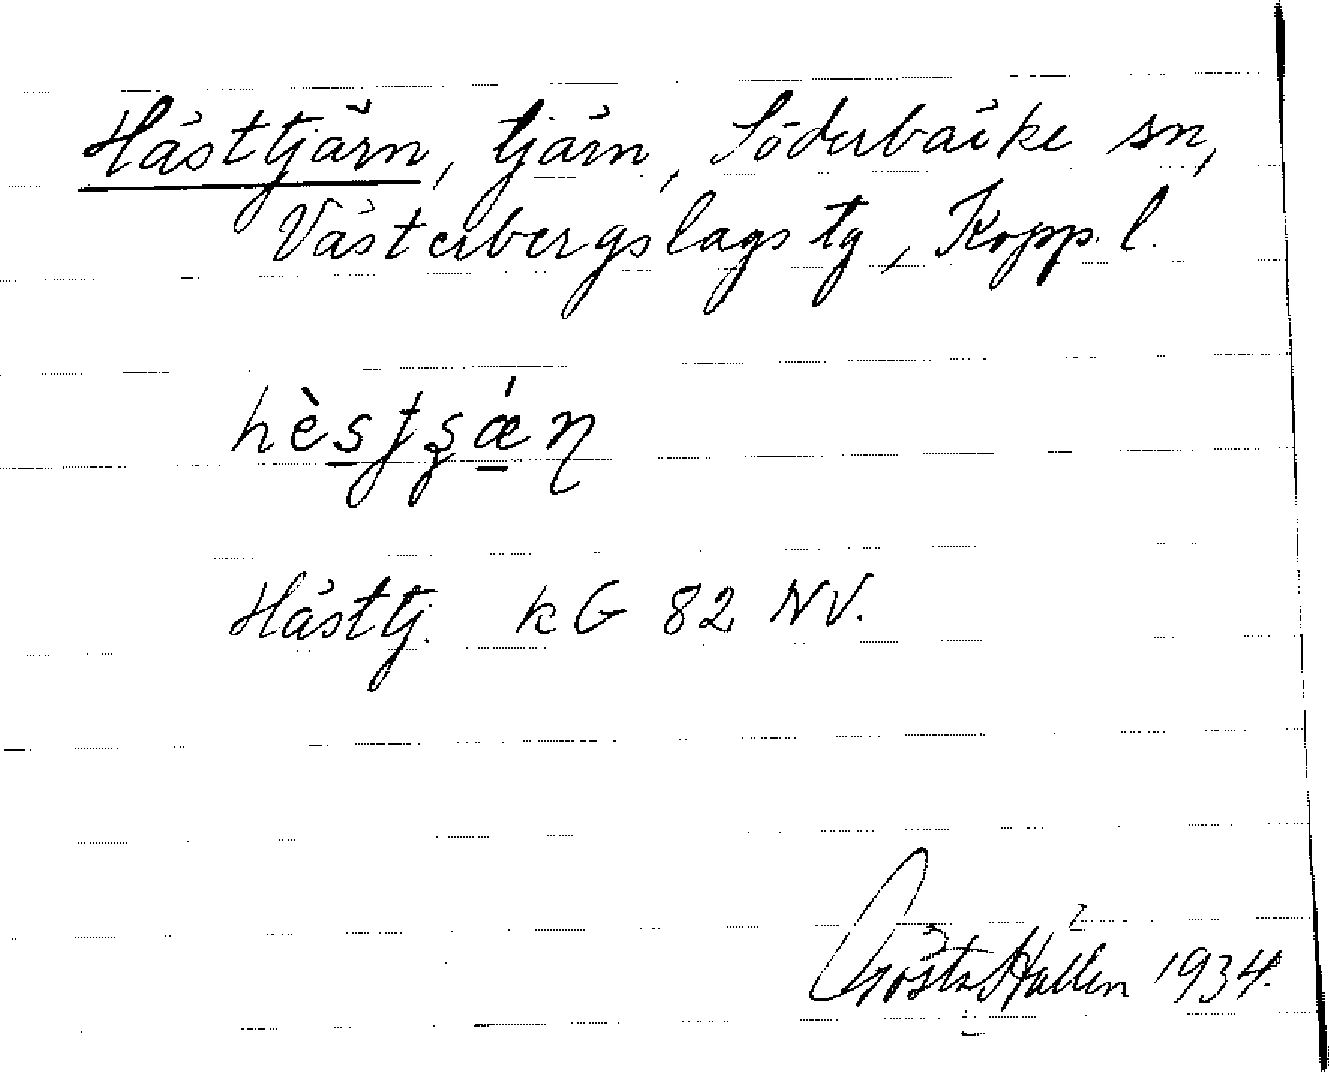 Hästtjärn, tjärn, Söderbärke sn,
Västerbergslags tg, Kopp. l.
hèsʃʂǽɳ
Hästtj. kG 82 NV.
Gösta Hallén 1934.